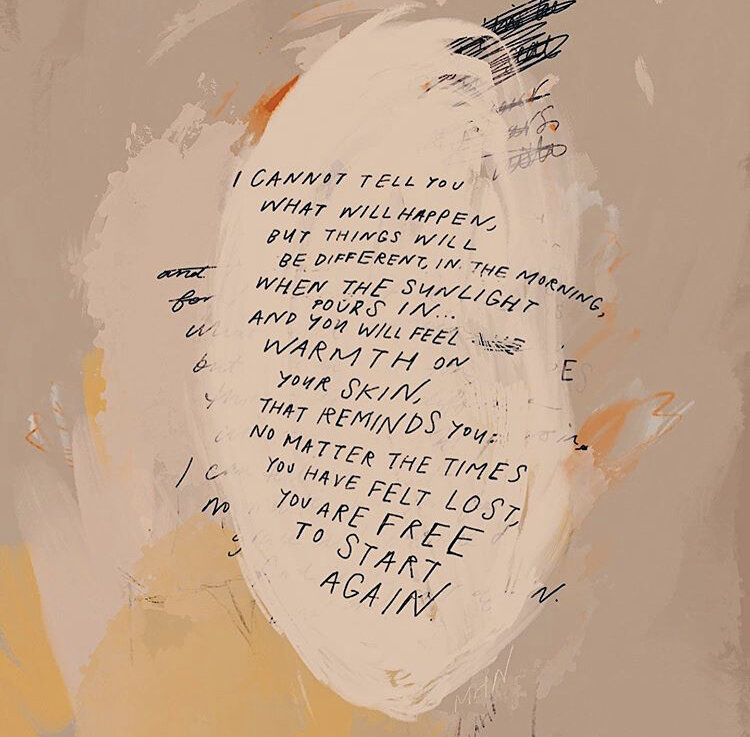 I CANNOT TELL YOU
WHAT WILL HAPPEN,
BUT THINGS WILL
BE DIFFERENT, IN THE MORNING,
WHEN THE SUNLIGHT
POURS IN...
AND YOU WILL FEEL
WARMTH ON
YOUR SKIN,
THAT REMINDS YOU:
NO MATTER THE TIMES
YOU HAVE FELT LOST,
YOU ARE FREE
TO START
AGAIN.
and
for
MHN